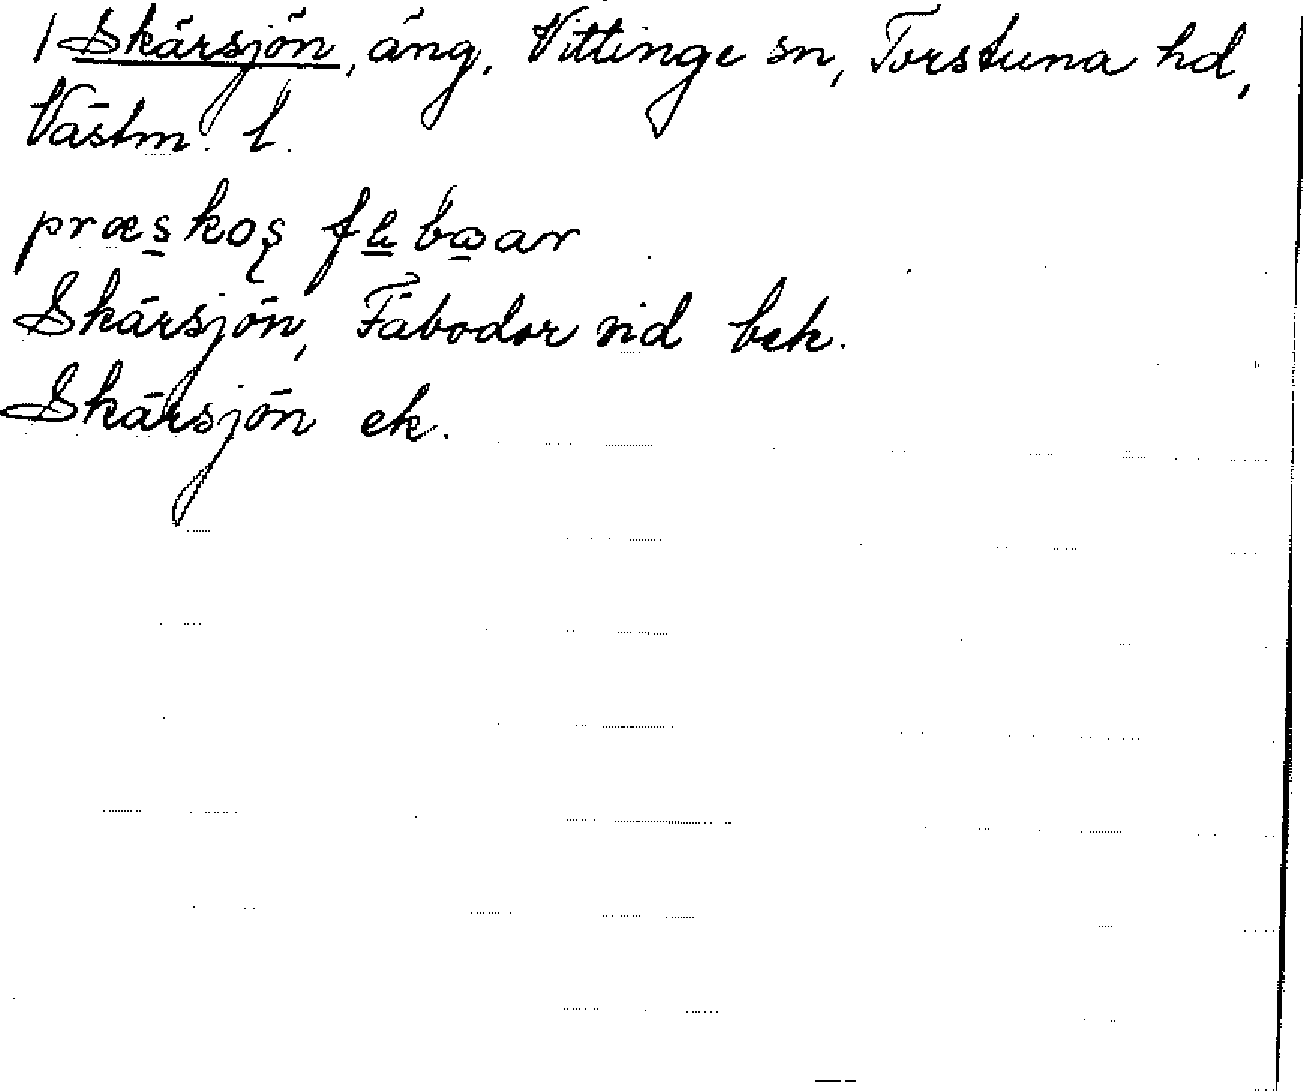 1 Skärsjön, äng, Vittinge sn, Torstuna hd,
Västm. l.
Skärsjön, Fäbodar vid bek.
Skärsjön ek.